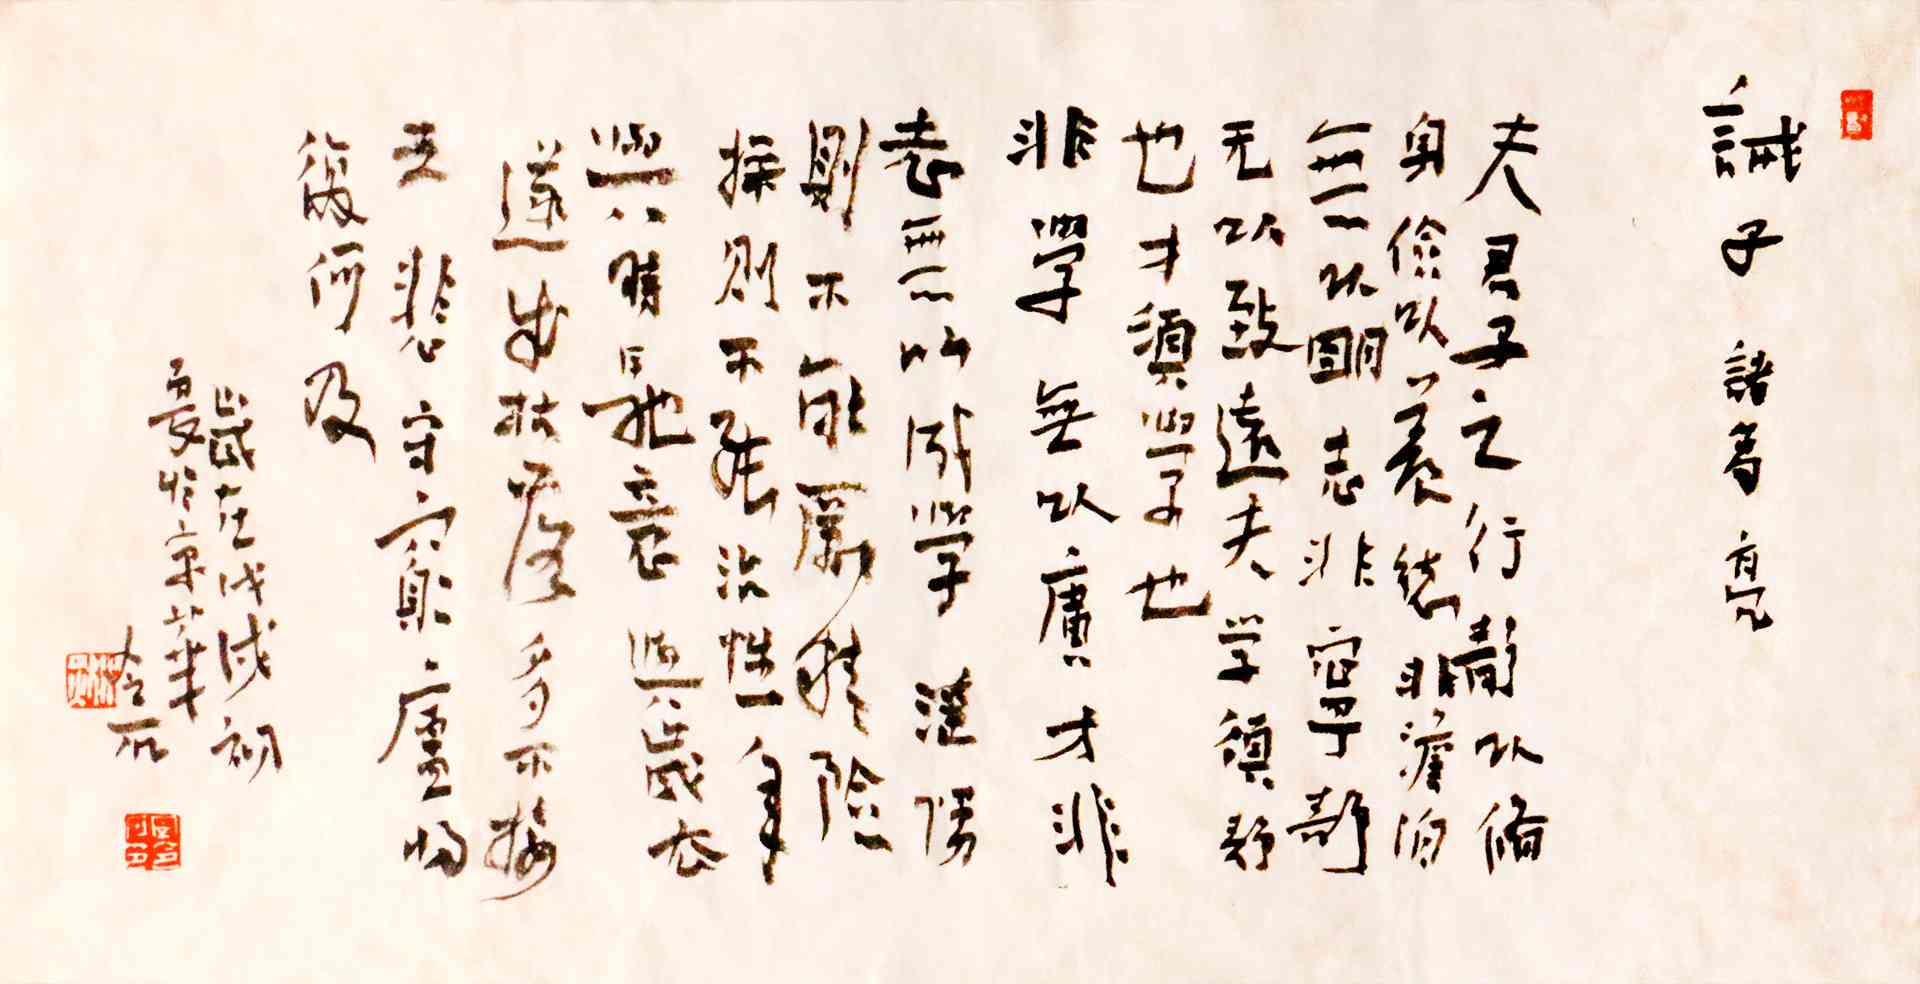 誡子 諸葛亮
夫君子之行靜以脩
身儉以養德非澹泊
無以明志非寧靜
无以致遠夫学須静
也才須學也
非學無以廣才非
志無以成學滛慢
則不能勵精險
操則不能治性年
與時馳意與歲去
遂成枯落多不接
世悲守窮廬將
復何及
歲在戊戌初
夏於京華
石